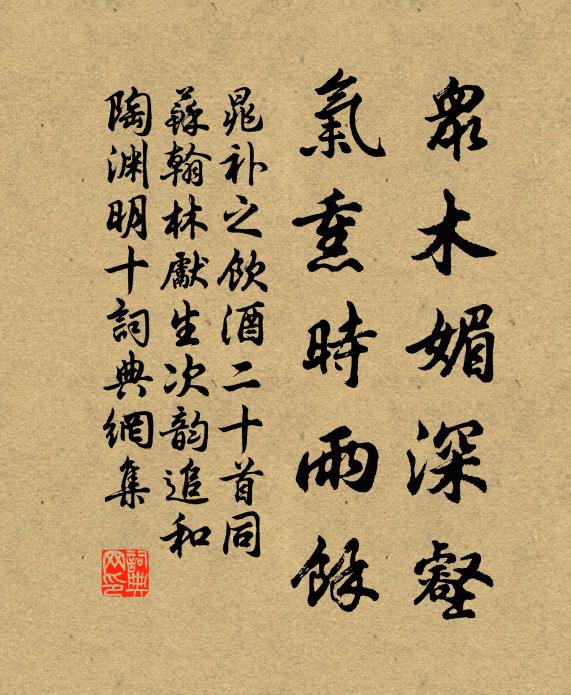 眾木媚深壑
氣熏時雨餘
晁补之飲酒二十首同
蘇翰林獻生次韵追和
陶渊明十詞典網集
詞典网印